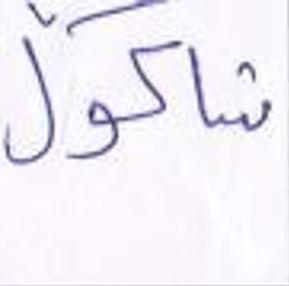 شاکوڵ